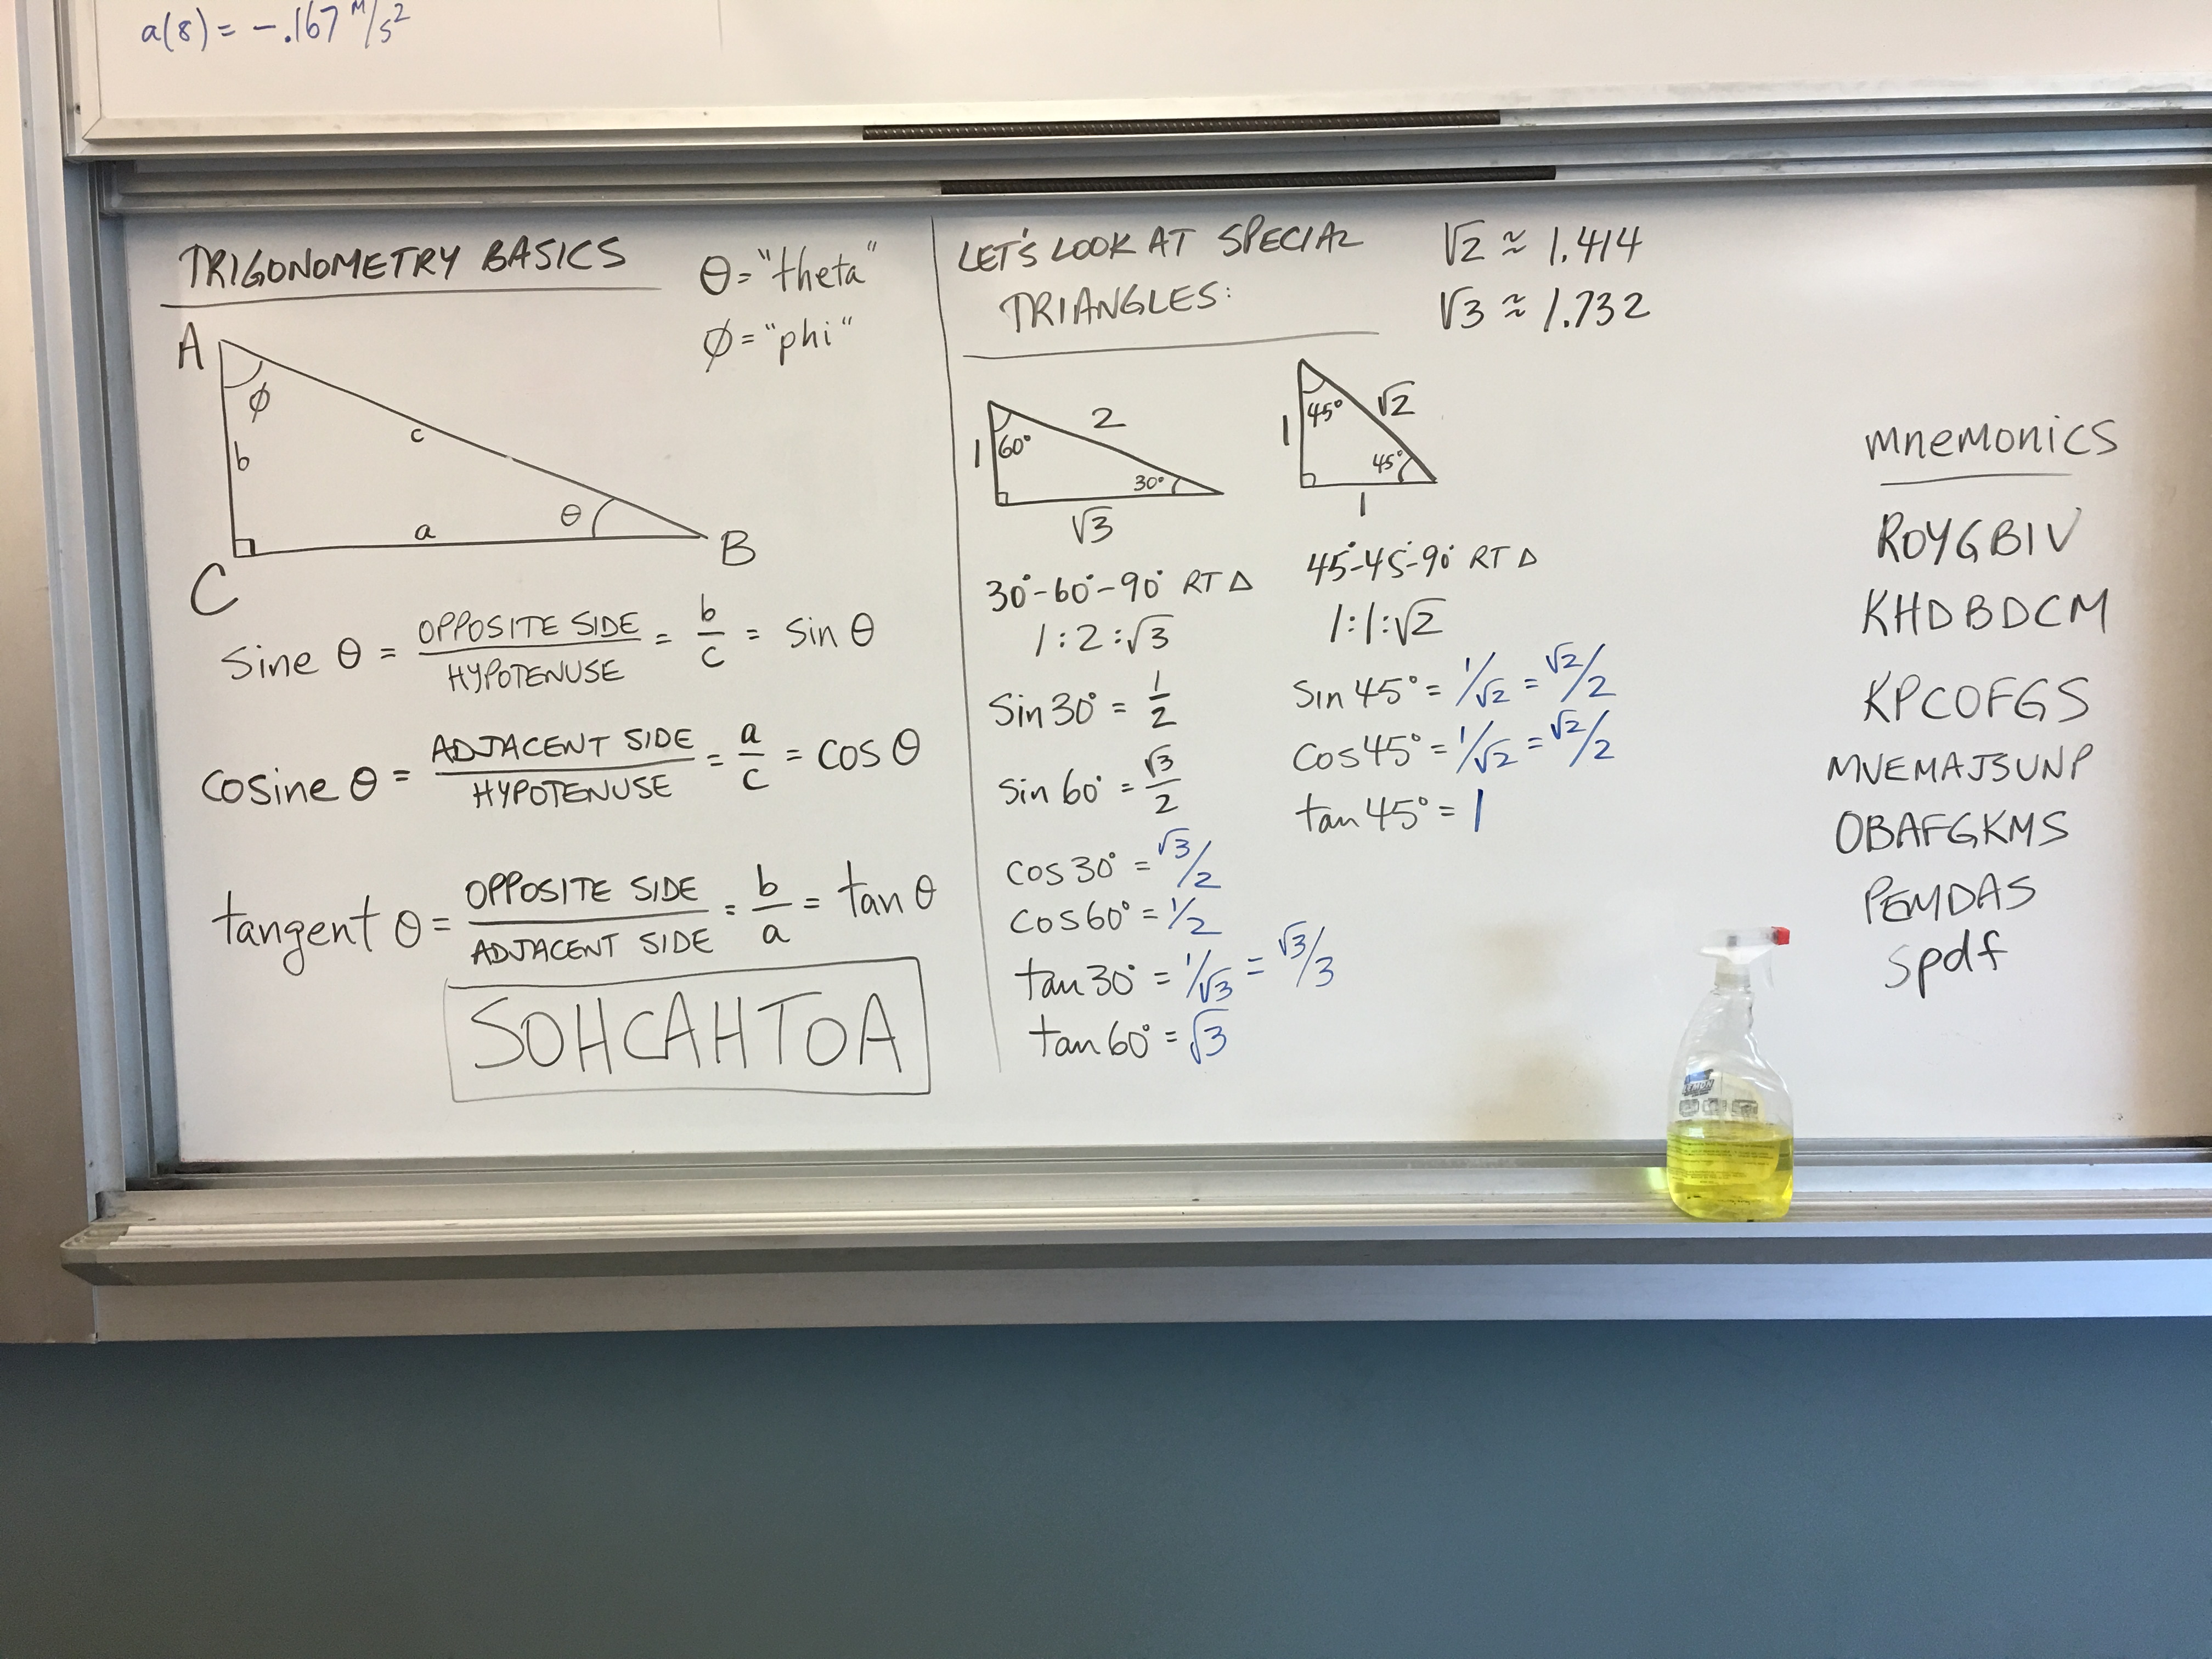 a(8) = -.167 M/s²
TRIGONOMETRY BASICS
θ = "theta"
φ = "phi"
A
φ
c
b
θ
a
B
C
sine θ = OPPOSITE SIDE / HYPOTENUSE = b/c = sin θ
cosine θ = ADJACENT SIDE / HYPOTENUSE = a/c = cos θ
tangent θ = OPPOSITE SIDE / ADJACENT SIDE = b/a = tan θ
SOHCAHTOA
LET'S LOOK AT SPECIAL
TRIANGLES:
√2 ≈ 1.414
√3 ≈ 1.732
2
1
60°
30°
√3
30°-60°-90° RT △
1:2:√3
sin 30° = 1/2
sin 60° = √3/2
cos 30° = √3/2
cos 60° = 1/2
tan 30° = 1/√3 = √3/3
tan 60° = √3
45°
√2
1
45°
1
45°-45°-90° RT △
1:1:√2
sin 45° = 1/√2 = √2/2
cos 45° = 1/√2 = √2/2
tan 45° = 1
mnemonics
ROYGBIV
KHDBDCM
KPCOFGS
MVEMAJSUNP
OBAFGKMS
PEMDAS
spdf